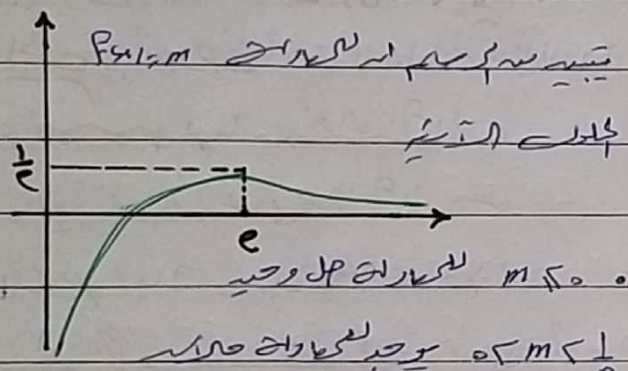 يتبين من الرسم ان للمعادلة f(x)=m
الحلول الآتية
1/e
e
m≤0 للمعادلة حل وحيد
0<m<1/e يوجد للمعادلة حلان